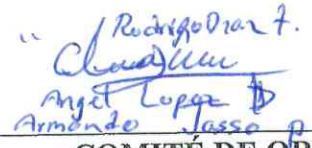 " Rodrigo Diaz F.
Angel Lopez
Armando Jasso P
COMITÉ DE OR